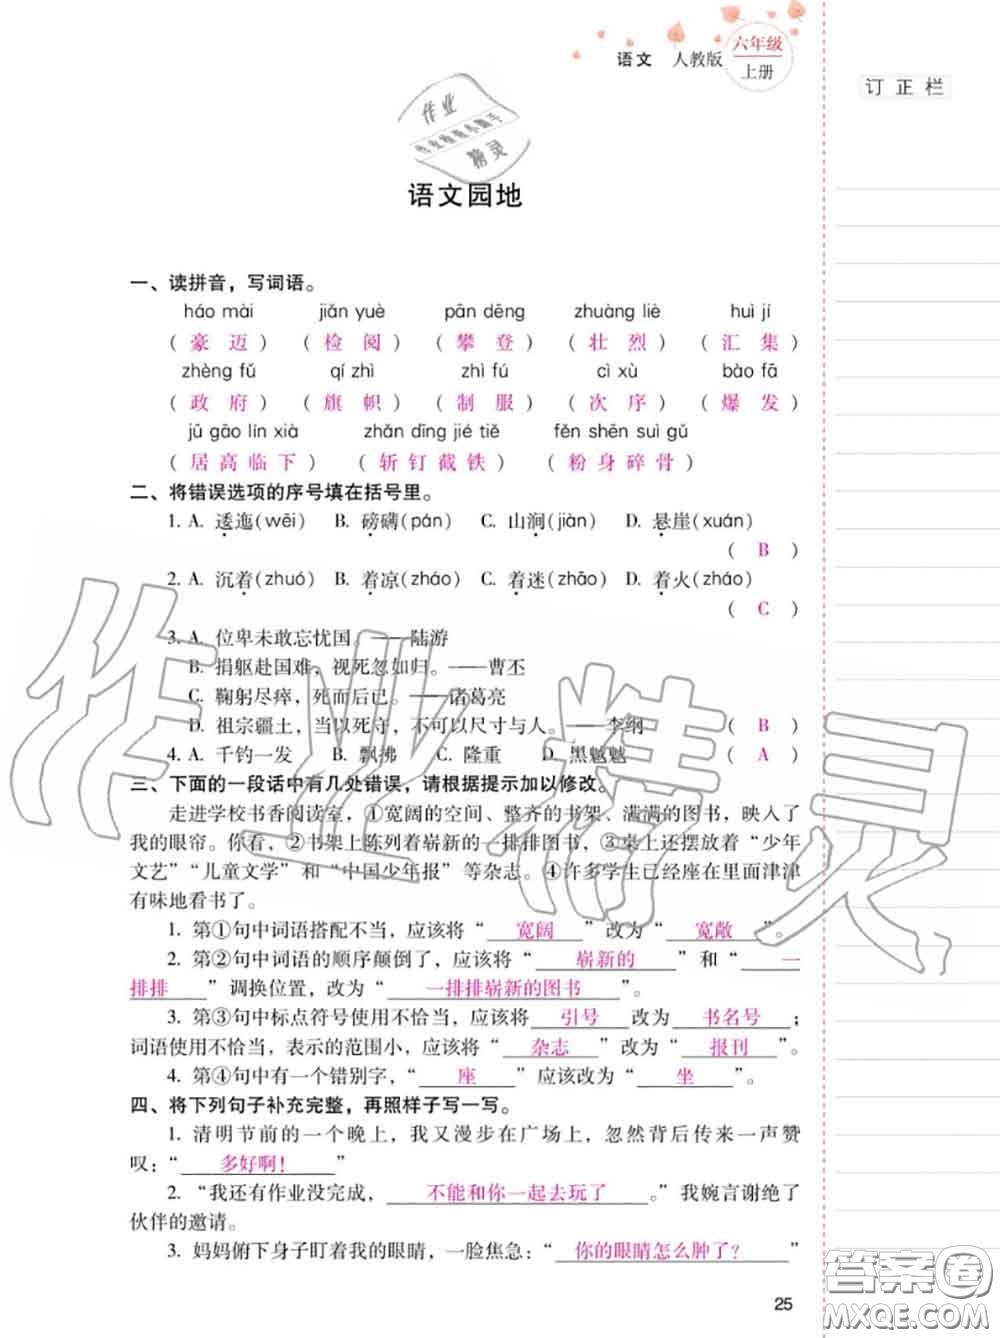 语文 人教版 六年级
上册
订正栏
作业
精灵
语文园地
一、读拼音，写词语。
háo mài jiǎn yuè pān dēng zhuàng liè huì jí
（豪迈）（检阅）（攀登）（壮烈）（汇集）
zhèng fǔ qí zhì zhì fú cì xù bào fā
（政府）（旗帜）（制服）（次序）（爆发）
jū gāo lín xià zhǎn dīng jié tiě fěn shēn suì gǔ
（居高临下）（斩钉截铁）（粉身碎骨）
二、将错误选项的序号填在括号里。
1. A. 逶迤(wēi) B. 磅礴(pán) C. 山涧(jiàn) D. 悬崖(xuán)
（B）
2. A. 沉着(zhuó) B. 着凉(zháo) C. 着迷(zhāo) D. 着火(zháo)
（C）
3. A. 位卑未敢忘忧国。——陆游
B. 捐躯赴国难，视死忽如归。——曹丕
C. 鞠躬尽瘁，死而后已。——诸葛亮
D. 祖宗疆土，当以死守，不可以尺寸与人。——李纲 （B）
4. A. 千钓一发 B. 飘拂 C. 隆重 D. 黑魆魆 （A）
三、下面的一段话中有几处错误，请根据提示加以修改。
走进学校书香阅读室，①宽阔的空间、整齐的书架、满满的图书，映入了
我的眼帘。你看，②书架上陈列着崭新的一排排图书，③桌上还摆放着“少年
文艺”“儿童文学”和“中国少年报”等杂志。④许多学生已经座在里面津津
有味地看书了。
1. 第①句中词语搭配不当，应该将“宽阔”改为“宽敞”。
2. 第②句中词语的顺序颠倒了，应该将“崭新的”和“一
排排”调换位置，改为“一排排崭新的图书”。
3. 第③句中标点符号使用不恰当，应该将引号改为书名号；
词语使用不恰当，表示的范围小，应该将“杂志”改为“报刊”。
4. 第④句中有一个错别字，“座”应该改为“坐”。
四、将下列句子补充完整，再照样子写一写。
1. 清明节前的一个晚上，我又漫步在广场上，忽然背后传来一声赞
叹：“多好啊！”
2. “我还有作业没完成，不能和你一起去玩了。”我婉言谢绝了
伙伴的邀请。
3. 妈妈俯下身子盯着我的眼睛，一脸焦急：“你的眼睛怎么肿了？”
25
作业精灵
答案卷
MXQE.COM